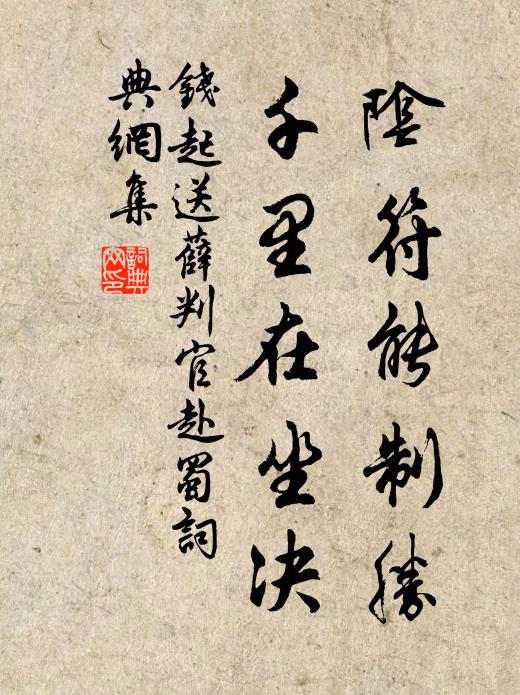 陰符能制勝
千里在坐決
錢起送薛判官赴蜀詞
典網集
詞典
网印